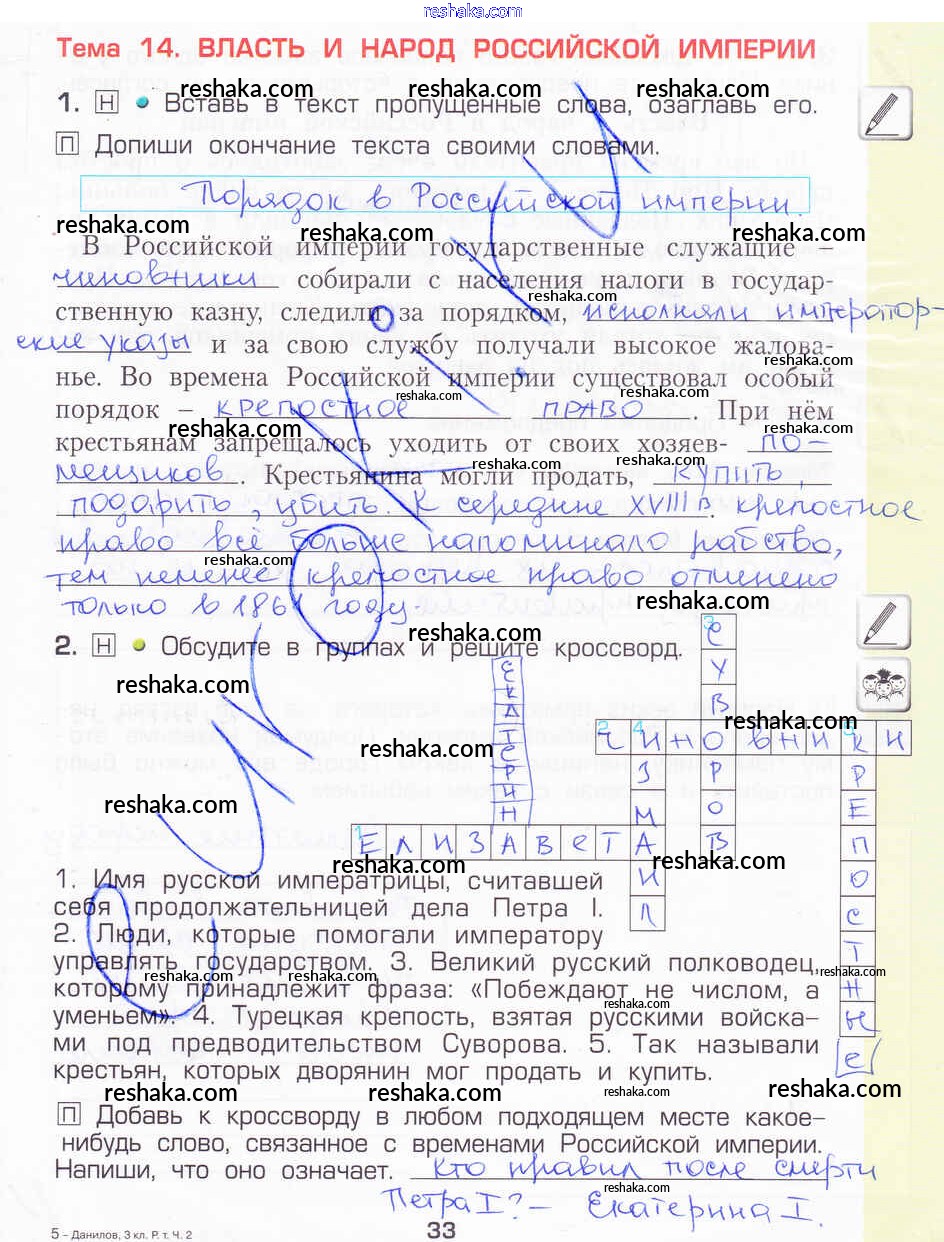 reshaka.com
Тема 14. ВЛАСТЬ И НАРОД РОССИЙСКОЙ ИМПЕРИИ
reshaka.com reshaka.com reshaka.com
1. Н • Вставь в текст пропущенные слова, озаглавь его.
П Допиши окончание текста своими словами.
reshaka.com reshaka.com reshaka.com
Порядок в Российской империи.
reshaka.com reshaka.com reshaka.com
В Российской империи государственные служащие –
чиновники собирали с населения налоги в государ-
ственную казну, следили за порядком, исполняли император-
ские указы и за свою службу получали высокое жалова-
нье. Во времена Российской империи существовал особый
порядок – КРЕПОСТНОЕ ПРАВО. При нём
крестьянам запрещалось уходить от своих хозяев- по-
мещиков. Крестьянина могли продать, купить,
подарить, убить. К середине XVIII в. крепостное
право всё больше напоминало рабство,
тем неменее крепостное право отменено
только в 1861 году.
2. Н • Обсудите в группах и решите кроссворд.
reshaka.com reshaka.com reshaka.com
3 СУВОРОВ
ЕКАТЕРИН
2 ЧИНОВНИКИ
4 ИЗМАИЛ
5 КРЕПОСТНЫЕ
1 ЕЛИЗАВЕТА
reshaka.com reshaka.com reshaka.com
1. Имя русской императрицы, считавшей
себя продолжательницей дела Петра I.
2. Люди, которые помогали императору
управлять государством. 3. Великий русский полководец,
которому принадлежит фраза: «Побеждают не числом, а
уменьем». 4. Турецкая крепость, взятая русскими войска-
ми под предводительством Суворова. 5. Так называли
крестьян, которых дворянин мог продать и купить.
reshaka.com reshaka.com reshaka.com
П Добавь к кроссворду в любом подходящем месте какое-
нибудь слово, связанное с временами Российской империи.
Напиши, что оно означает. Кто правил после смерти
Петра I? – Екатерина I.
reshaka.com reshaka.com reshaka.com
5 – Данилов, 3 кл. Р. т. Ч. 2
33